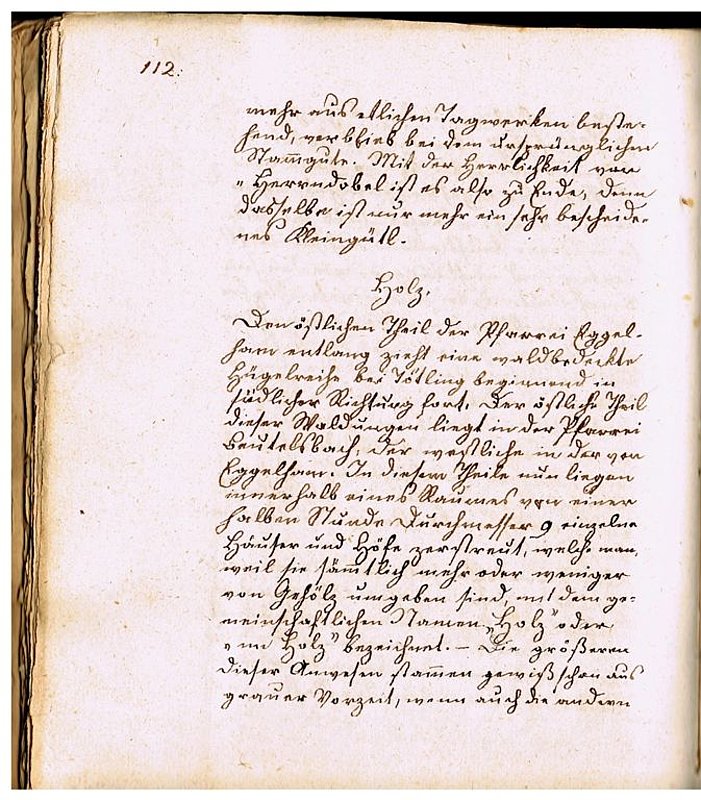 112.
mehr aus etlichen Tagwerken beste-
hend, verblieb bei dem ursprünglichen
Stammgute. Mit der Herrlichkeit von
„Herrndobel ist es also zu Ende, denn
dasselbe ist nur mehr ein sehr bescheide-
nes Kleingütl.
Holz.
Den östlichen Theil der Pfarrei Eggel-
ham entlang zieht eine waldbedeckte
Hügelreihe bei Tötling beginnend in
südlicher Richtung fort. Der östliche Theil
dieser Waldungen liegt in der Pfarrei
Beutelsbach, der westliche in der von
Eggelham. In diesem Theile nun liegen
innerhalb eines Raumes von einer
halben Stunde Durchmesser 9 einzelne
Häuser und Höfe zerstreut, welche man,
weil sie sämmtlich mehr oder weniger
von Gehölz umgeben sind, mit dem ge-
meinschaftlichen Namen „Holz" oder
„im Holz" bezeichnet. — Die größeren
dieser Anwesen stammen gewiß schon aus
grauer Vorzeit, wenn auch die andern